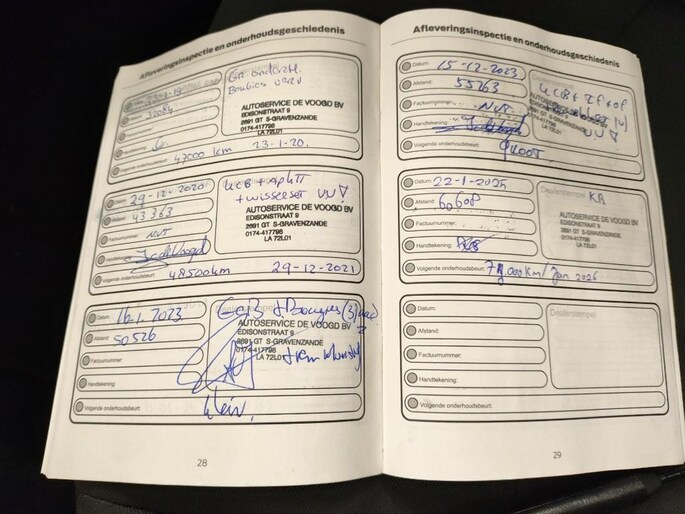 Afleveringsinspectie en onderhoudsgeschiedenis
Gr. onderh.
Bougies
AUTOSERVICE DE VOOGD BV
EDISONSTRAAT 9
2691 GT S-GRAVENZANDE
0174-417796
LA 72L01
Volgende onderhoudsbeurt: 47000 km 23-1-20.
Datum: 29-12-2020
Afstand: 43363
Factuurnummer: NVT
Handtekening:
KCB +
+ wisserset VV
AUTOSERVICE DE VOOGD BV
EDISONSTRAAT 9
2691 GT S-GRAVENZANDE
0174-417796
LA 72L01
Volgende onderhoudsbeurt: 48500km 29-12-2021
Datum: 16.1.2023
Afstand: 50526
Factuurnummer:
Handtekening:
AUTOSERVICE DE VOOGD BV
EDISONSTRAAT 9
2691 GT S-GRAVENZANDE
0174-417796
LA 72L01
Volgende onderhoudsbeurt: klein.
28
Afleveringsinspectie en onderhoudsgeschiedenis
Datum: 15-12-2023
Afstand: 55263
Factuurnummer: NVT
Handtekening:
KCB +
AUTOSERVICE DE VOOGD BV
EDISONSTRAAT 9
2691 GT S-GRAVENZANDE
0174-417796
LA 72L01
Volgende onderhoudsbeurt: GROOT
Datum: 22-1-2025
Afstand: 60608
Factuurnummer:
Handtekening:
Dealerstempel
AUTOSERVICE DE VOOGD BV
EDISONSTRAAT 9
2691 GT S-GRAVENZANDE
0174-417796
LA 72L01
Volgende onderhoudsbeurt: Jan 2026
Datum:
Afstand:
Factuurnummer:
Handtekening:
Dealerstempel
Volgende onderhoudsbeurt:
29